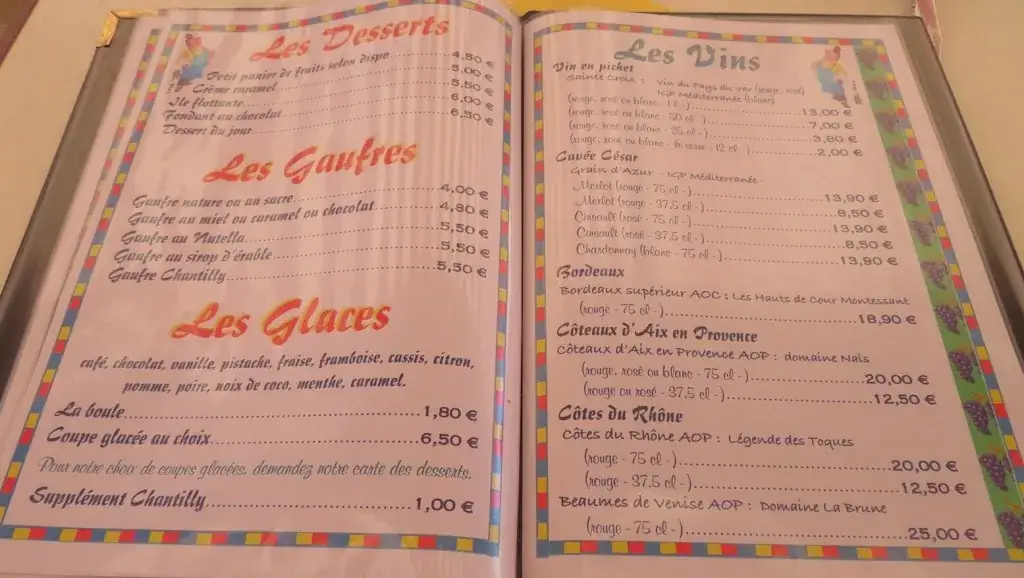 Les Desserts
Petit panier de fruits selon dispo 4,50 €
Crème caramel 5,00 €
Ile flottante 5,50 €
Fondant au chocolat 6,00 €
Dessert du jour 6,50 €
Les Gaufres
Gaufre nature ou au sucre 4,00 €
Gaufre au miel ou caramel ou chocolat 4,80 €
Gaufre au Nutella 5,50 €
Gaufre au sirop d'érable 5,50 €
Gaufre Chantilly 5,50 €
Les Glaces
café, chocolat, vanille, pistache, fraise, framboise, cassis, citron,
pomme, poire, noix de coco, menthe, caramel.
La boule 1,80 €
Coupe glacée au choix 6,50 €
Pour notre choix de coupes glacées, demandez notre carte des desserts.
Supplément Chantilly 1,00 €
Les Vins
Vin en pichet
Sainte Croix : Vin du Pays du Var (rouge, rosé)
IGP Méditerranée (blanc)
(rouge, rosé ou blanc - 1 l -) 13,00 €
(rouge, rosé ou blanc - 50 cl -) 7,00 €
(rouge, rosé ou blanc - 25 cl -) 3,80 €
(rouge, rosé ou blanc - le verre - 12 cl -) 2,00 €
Cuvée César
Grain d'Azur - IGP Méditerranée -
Merlot (rouge - 75 cl -) 13,90 €
Merlot (rouge - 37,5 cl -) 8,50 €
Cinsault (rosé - 75 cl -) 13,90 €
Cinsault (rosé - 37,5 cl -) 8,50 €
Chardonnay (blanc - 75 cl -) 13,90 €
Bordeaux
Bordeaux supérieur AOC : Les Hauts de Cour Montessant
(rouge - 75 cl -) 18,90 €
Côteaux d'Aix en Provence
Côteaux d'Aix en Provence AOP : domaine Naïs
(rouge, rosé ou blanc - 75 cl -) 20,00 €
(rouge ou rosé - 37,5 cl -) 12,50 €
Côtes du Rhône
Côtes du Rhône AOP : Légende des Toques
(rouge - 75 cl -) 20,00 €
(rouge - 37,5 cl -) 12,50 €
Beaumes de Venise AOP : Domaine La Brune
(rouge - 75 cl -) 25,00 €